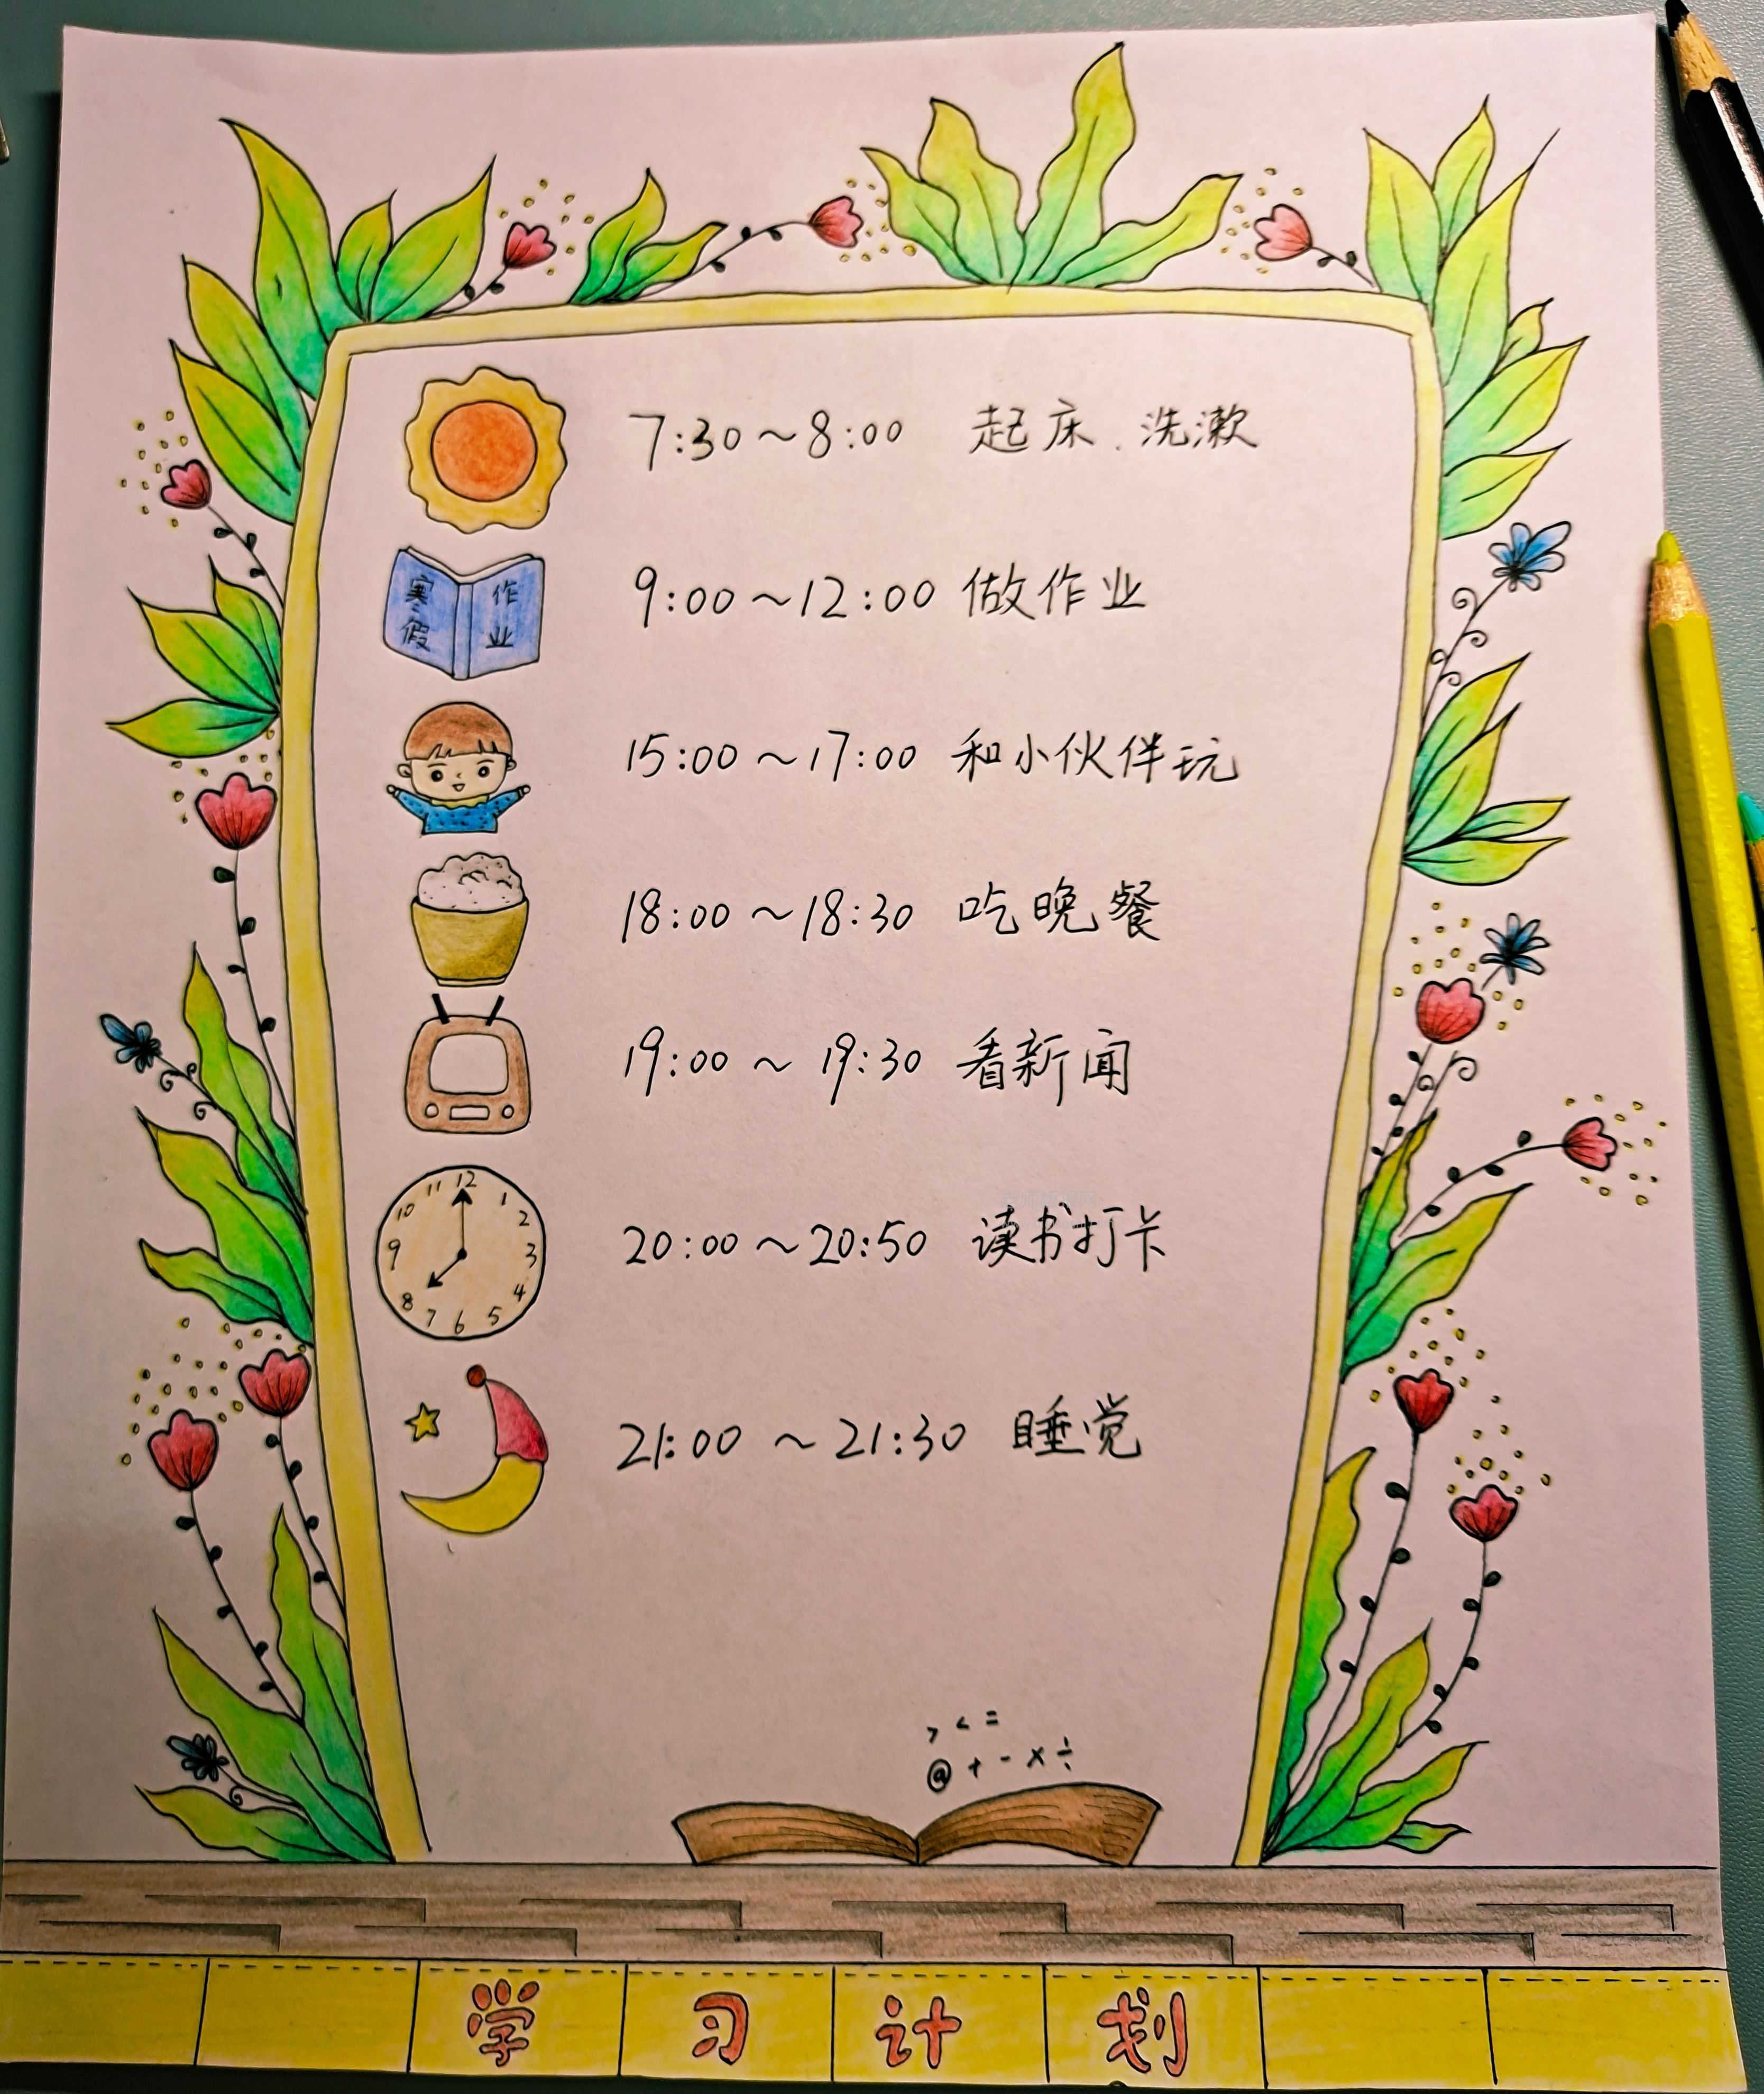 7:30~8:00 起床、洗漱
寒假 作业
9:00~12:00 做作业
15:00~17:00 和小伙伴玩
18:00~18:30 吃晚餐
19:00~19:30 看新闻
12 1 2 3 4 5 6 7 8 9 10 11
20:00~20:50 读书打卡
21:00~21:30 睡觉
> < =
@ + - × ÷
学习计划